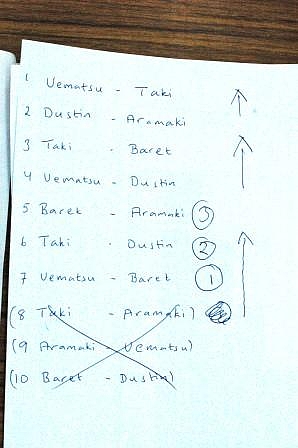 1 Uematsu - Taki
2 Dustin - Aramaki
3 Taki - Baret
4 Uematsu - Dustin
5 Baret - Aramaki 3
6 Taki - Dustin 2
7 Uematsu - Baret 1
(8 Taki - Aramaki)
(9 Aramaki - Uematsu)
(10 Baret - Dustin)